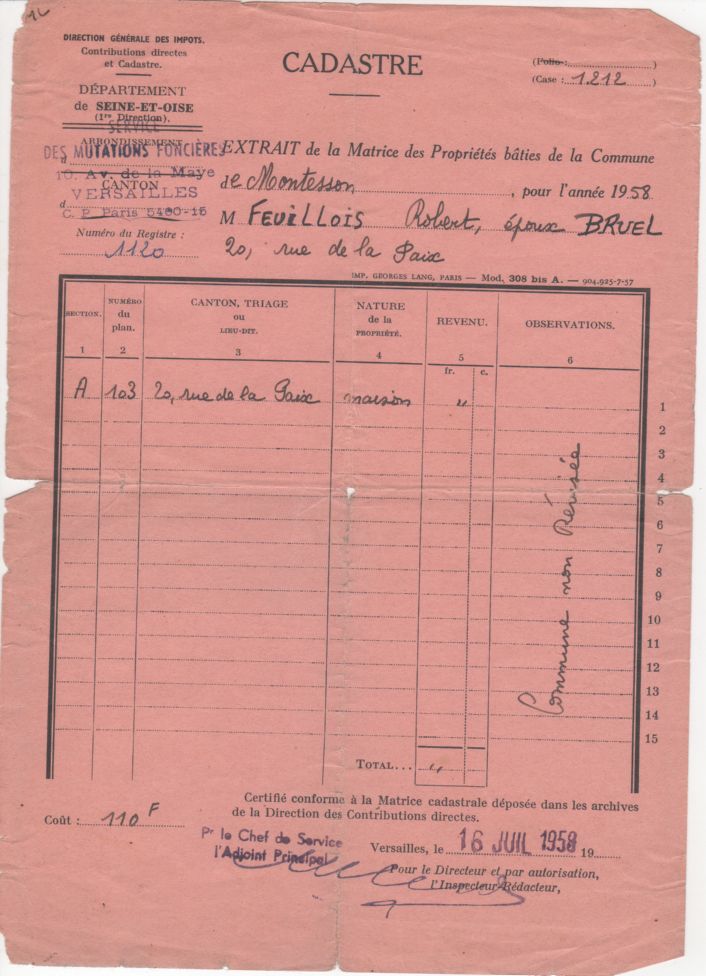 DIRECTION GÉNÉRALE DES IMPOTS.
Contributions directes
et Cadastre.
DÉPARTEMENT
de SEINE-ET-OISE
(1re Direction).
SERVICE
ARRONDISSEMENT
DES MUTATIONS FONCIÈRES
d
10. Av. de la Maye
CANTON
VERSAILLES
d
C. P. Paris 5400-15
Numéro du Registre :
1120
CADASTRE
(Folio : )
(Case : 1.212 )
EXTRAIT de la Matrice des Propriétés bâties de la Commune
de Montesson , pour l'année 1958
M FEUILLOIS Robert, époux BRUEL
20, rue de la Paix
IMP. GEORGES LANG, PARIS — Mod. 308 bis A. — 904.925-7-57
SECTION. NUMÉRO du plan. CANTON, TRIAGE ou LIEU-DIT. NATURE de la PROPRIÉTÉ. REVENU. OBSERVATIONS.
1 2 3 4 5 6
fr. c.
A 103 20, rue de la Paix maison " 1
2
3
4
5
6
7
8
9
10
11
12
13
14
15
Commune non Révisée
TOTAL... "
Certifié conforme à la Matrice cadastrale déposée dans les archives
de la Direction des Contributions directes.
Coût : 110 F
Pr le Chef de Service
l'Adjoint Principal
Versailles, le 16 JUIL 1958 19
Pour le Directeur et par autorisation,
l'Inspecteur-Rédacteur,